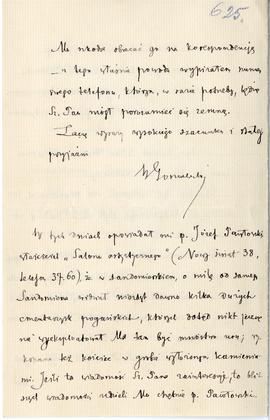 625.
Nie szkoda obracać go na korespondencję
– z tego właśnie powodu wypisałem numer
swego telefonu, którym, w razie potrzeby, będzie
Sz. Pan mógł porozumieć się ze mną.
Łączę wyrazy wysokiego szacunku i stałej
przyjaźni
W tych dniach opowiadał mi p. Józef Pawłowski
właściciel „Salonu artystycznego” (Nowy Świat 38,
telefon 37.60), iż w Sandomierskiem, o milę od samego
Sandomierza widział niezbyt dawno kilka dużych
cmentarzysk pogańskich, których dotąd nikt jeszcze
nie wyeksploatował. Ma tam być mnóstwo urn;
też kości w grobie wyłożonym kamienia-
mi. Jeśli ta wiadomość Sz. Pana zainteresuje, to bliż
szych wiadomości udzieli Mu chętnie p. Pawłowski.